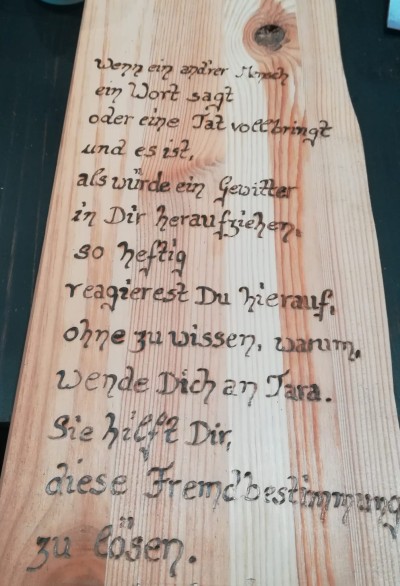 Wenn ein andrer Mensch
ein Wort sagt
oder eine Tat vollbringt
und es ist,
als würde ein Gewitter
in Dir heraufziehen,
so heftig
reagierest Du hierauf,
ohne zu wissen, warum,
wende Dich an Tara.
Sie hilft Dir,
diese Fremdbestimmung
zu lösen.